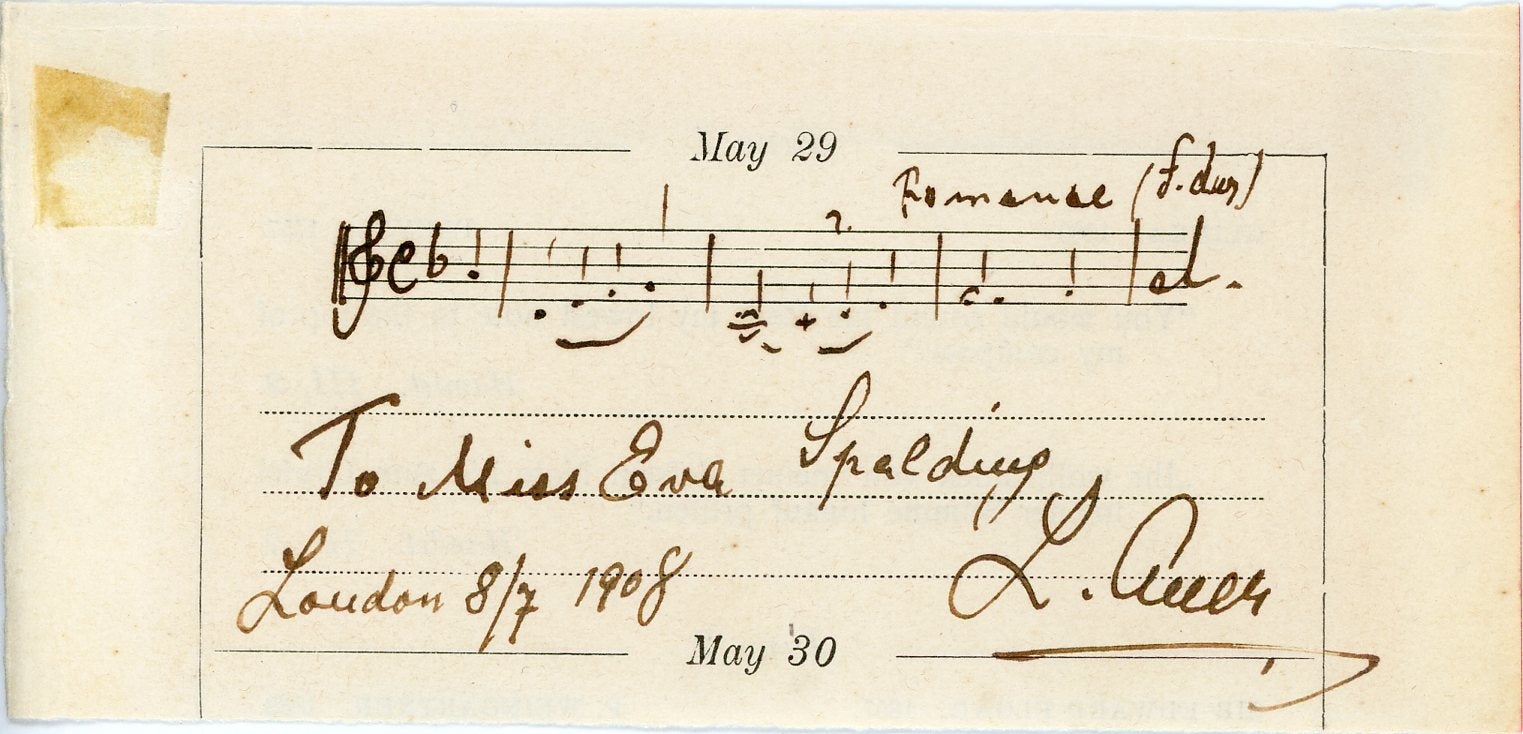 May 29
Romanse (f. dur)
To Miss Eva Spalding
London 8/7 1908
L. Auer
May 30